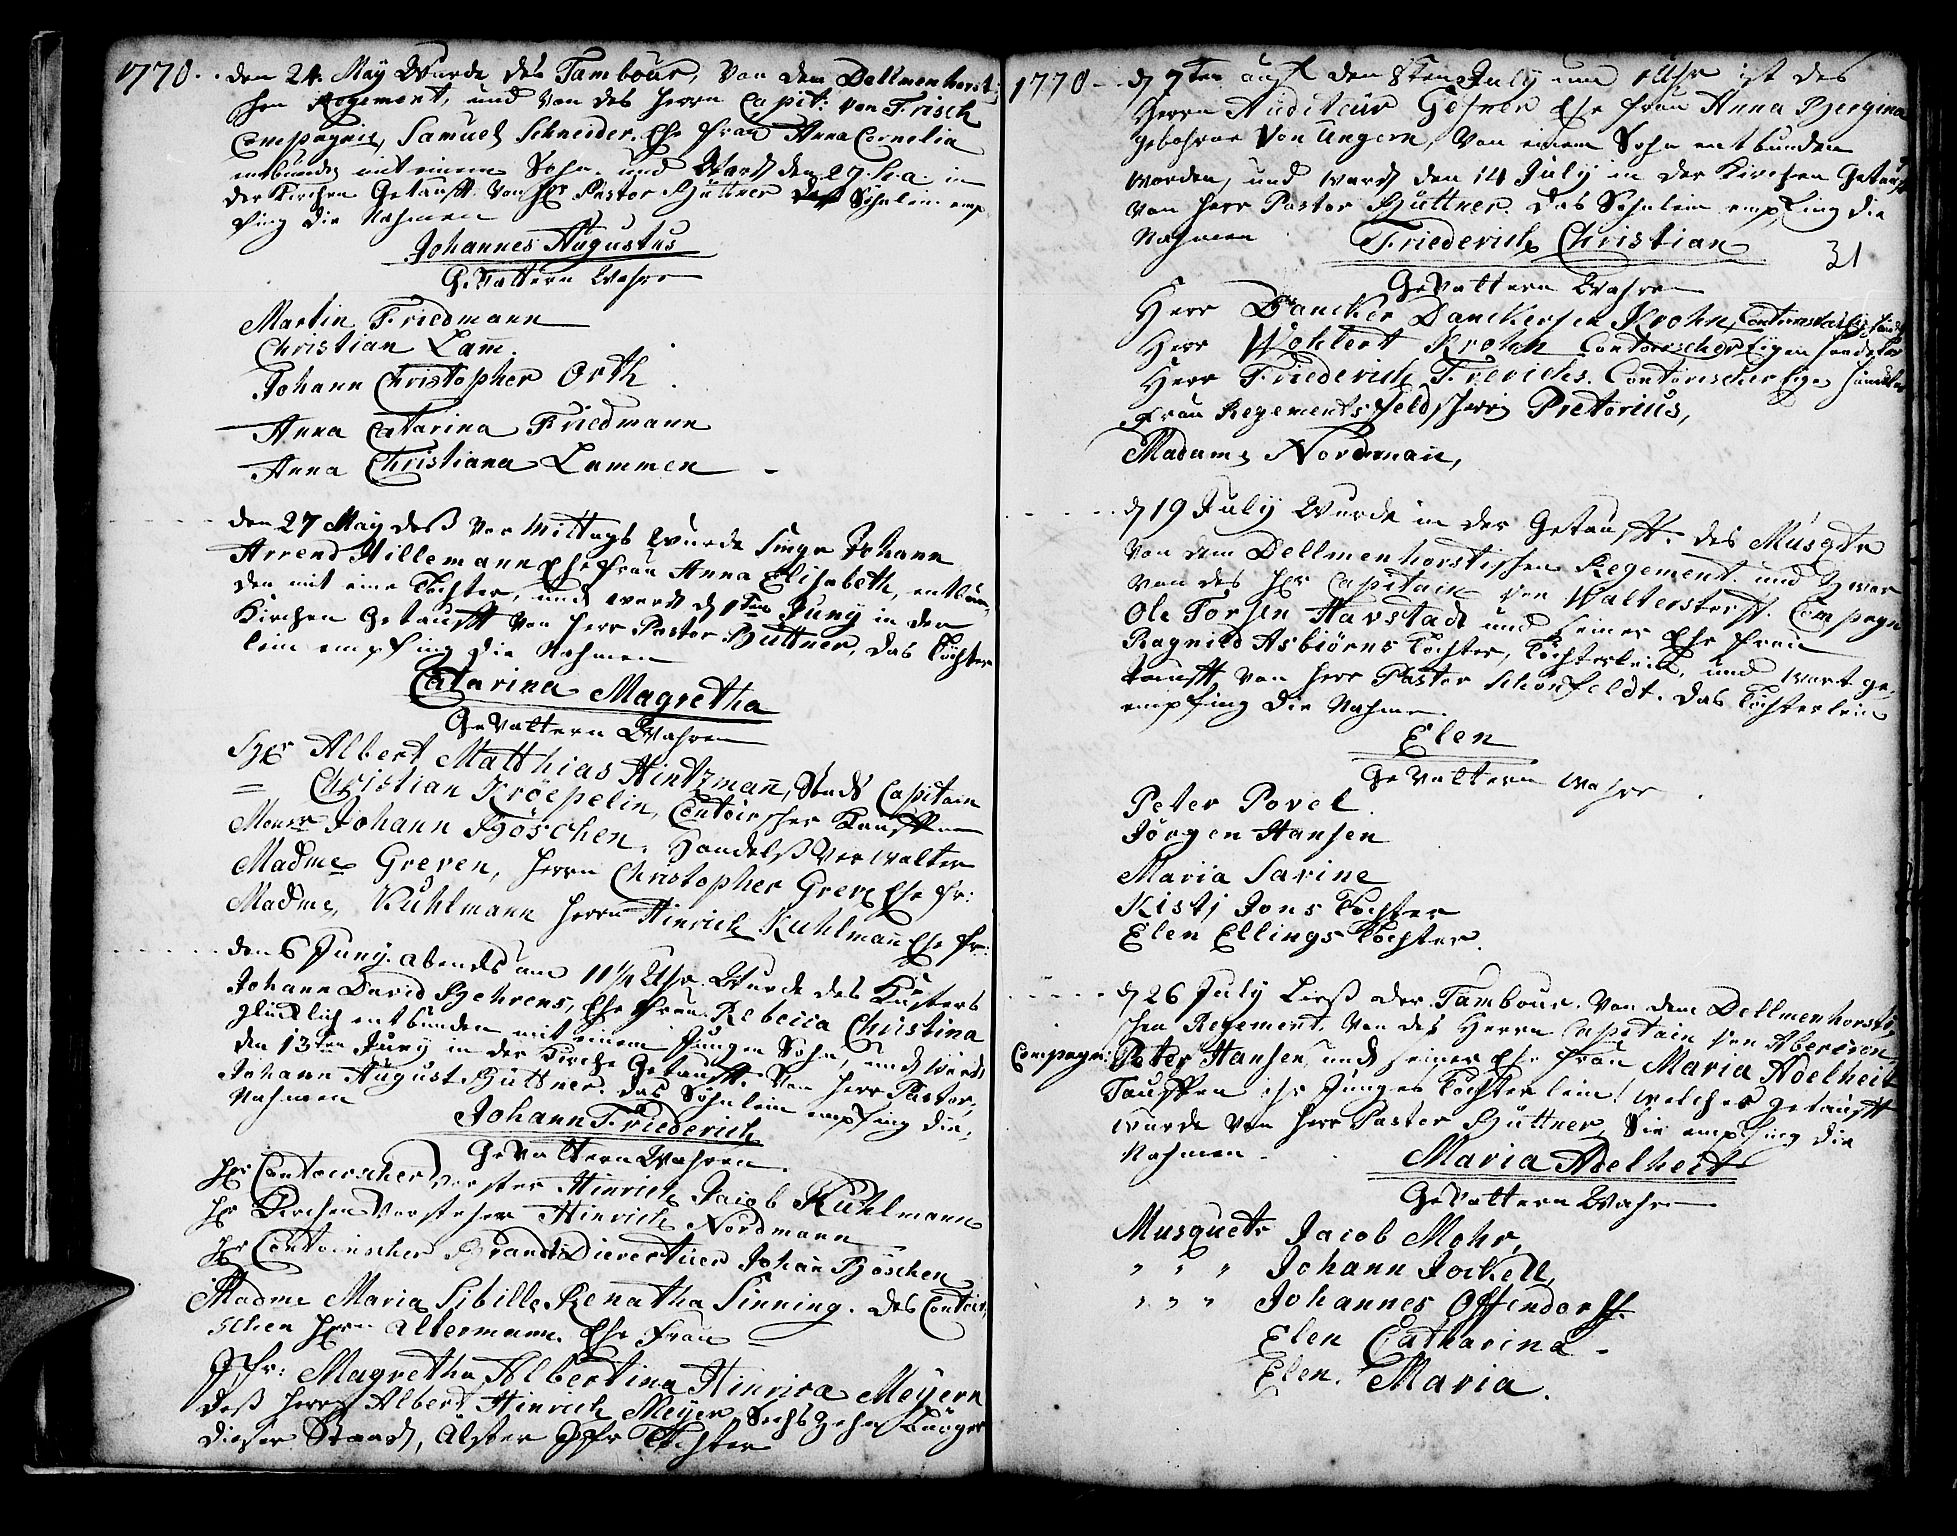 1770. den 24. May Wurde des Tambour, von dem Dellmenhorsti-
schen Regement, und von des Herrn Capit: von Frisch
Compagnie, Samuel Schneider Ehe Frau Anna Cornelia
entbunden mit einem Sohn und Ward den 27. in
der Kirchen Getaufft von Hr Pastor Büttner das Söhnlein emp
fing die Nahmen
Johannes Augustus
GeVattern Wahre
Martin Friedmann
Christian Lam̄
Johann Christopher Orth
Anna Catarina Friedmann
Anna Christiana Lammen
den 27 May deß Vor Mittags Wurde Johann
Arrend Hillemann Ehe Frau Anna Elisabeth, entbun,
den mit eine Tochter, und ward d 1ten Juny in der
Kirchen Getaufft von Herr Pastor Büttner, das Töchter
lein empfing die Nahmen
Catarina Magretha
GeVattern Wahren
Hr Albert Matthias Hintzman̄, Stads Capitain
= Christian Kröepelin, Contoirscher Kauffman
Monsr Johann Böschen, Handelß Verwalter
Madme Greven, Herrn Christopher Greve Ehe Fr:
Madme, Kuhlmann Herrn Hinrich Kuhlman̄ Ehe Fr:
den 6 Juny abends um 11 1/4 Uhr. Wurde des Küsters
Johann David Behrens, Ehe Frau Rebecca Christina
glücklich entbunden mit einem Jungen Sohn, und Ward
den 13ten Juny in der Kirche Getaufft von Herr Pastor,
Johann August Büttner. das Söhnlein empfing die,
Nahmen
Johann Friederich
GeVattern Wahren
Hr Contoirscher Vorster Hinrich Jacob Kuhlmann
Hr Kirchen Vorsteher Hinrich Nordmann
Hr Contoirscher Brandt Dierectuer Johan̄ Böschen
Madme Maria Sibille Renatha Sinning. des Contoir,
schen Hrn altermann Ehe Frau
Jfr: Magretha Albertina Hinrica Meyern
deß Herrn Albert Hinrich Meyer Sechszehen Bürger
dieser Stadt, älster Jfr Tochter
1770 d 7ten auf den 8ten July um 1 Uhr ist des
Herrn Auditeur Gösner Ehe Frau Anna Bergina
gebohrne von Ungern, von einem Sohn entbunden
worden, und ward den 14 July in der Kirchen Getauft
von Herr Pastor Büttner. das Söhnlein empfing die
Nahmen Friederich Christian
31
GeVattern Wahren
Herr Dancker Danckersen Krohn,
Herr Wohlert Krohn Contoirscher Eigen handler
Herr Friederich Frerichs. Contoirischer Eigen Handler
Frau Regements Feldscherr Pretorius,
Madame Nordman̄,
d 19 July Wurde in der Getaufft. des Musqdtr
von dem Dellmenhorstischen Regement und Zwar
von des Hr Capitain von Walterstorff. Compagn
Ole Torsen Havstad und seiner Ehe Frau
Ragnild Asbiörns Tochter, Töchterlein, und wart ge,
taufft von Herr Pastor Schönfeldt. das Töchterlein
empfing die Nahme.
Elen
GeVattern Wahre
Peter Povel
Jörgen Hansen
Maria Sarine
Kisti Jons Tochter
Elen Ellings Tochter.
d 26 July Ließ der Tambour. von dem Dellmenhorsti,
schen Regement, von des Herrn Capitain von
Compagni: Peter Hansen, und seiner Ehe Frau Maria Adelheit
Tauffen ihr Junges Töchterlein! welches getaufft
wurde von Herr Pastor Büttner, Sie empfing die
Nahmen
Maria Adelheit
GeVattern Wahr
Musquetr Jacob Mohr,
" " " Johann Jockell,
" " " Johannes Offendorff.
Elen Catharina
Elen. Maria.